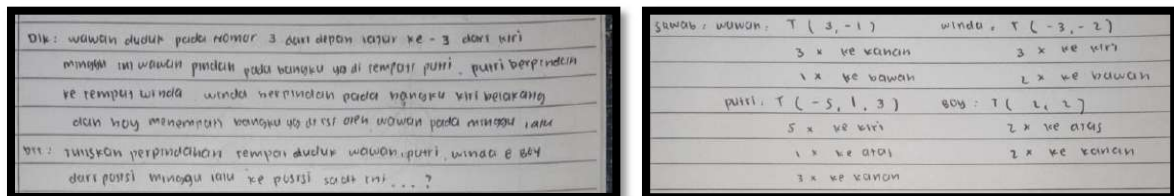 Dik: wawan duduk pada nomor 3 dari depan lajur ke-3 dari kiri
minggu ini wawan pindah pada bangku yg di tempati putri. putri berpindah
ke tempat winda winda berpindah pada bangku kiri belakang
dan boy menempati bangku yg di isi oleh wawan pada minggu lalu
Dit: tuliskan perpindahan tempat duduk wawan, putri, winda & Boy
dari posisi minggu lalu ke posisi saat ini...?
Jawab: wawan: T (3, -1) winda: T (-3, -2)
3 x ke kanan 3 x ke kiri
1 x ke bawah 2 x ke bawah
putri: T (-5, 1, 3) Boy: T (2, 2)
5 x ke kiri 2 x ke atas
1 x ke atas 2 x ke kanan
3 x ke kanan